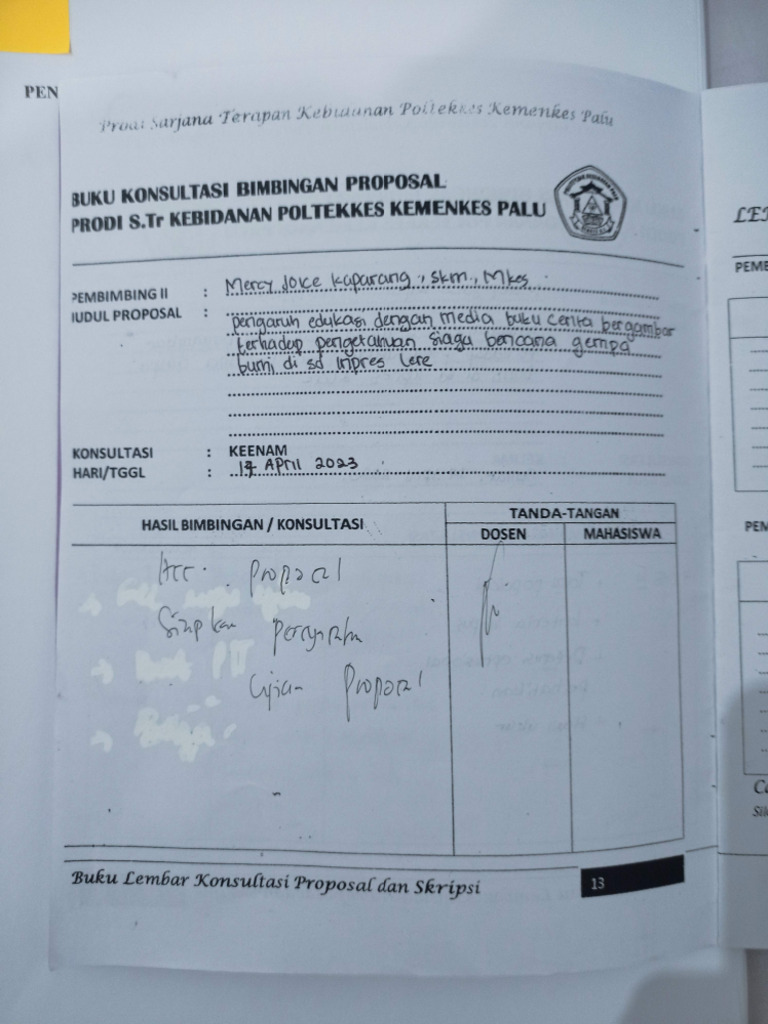 PEN
Prodi Sarjana Terapan Kebidanan Poltekkes Kemenkes Palu
BUKU KONSULTASI BIMBINGAN PROPOSAL
PRODI S.Tr KEBIDANAN POLTEKKES KEMENKES PALU
PEMBIMBING II : Mercy Joice Kaparang, SKM., MKes
JUDUL PROPOSAL : pengaruh edukasi dengan media buku cerita bergambar
terhadap pengetahuan siaga bencana gempa
bumi di sd Inpres Lere
KONSULTASI : KEENAM
HARI/TGGL : 17 APRIL 2023
HASIL BIMBINGAN / KONSULTASI
TANDA-TANGAN
DOSEN MAHASISWA
Acc. Proposal
Siapkan persyaratan
Ujian Proposal
Buku Lembar Konsultasi Proposal dan Skripsi
13
LE
PEME
PEM